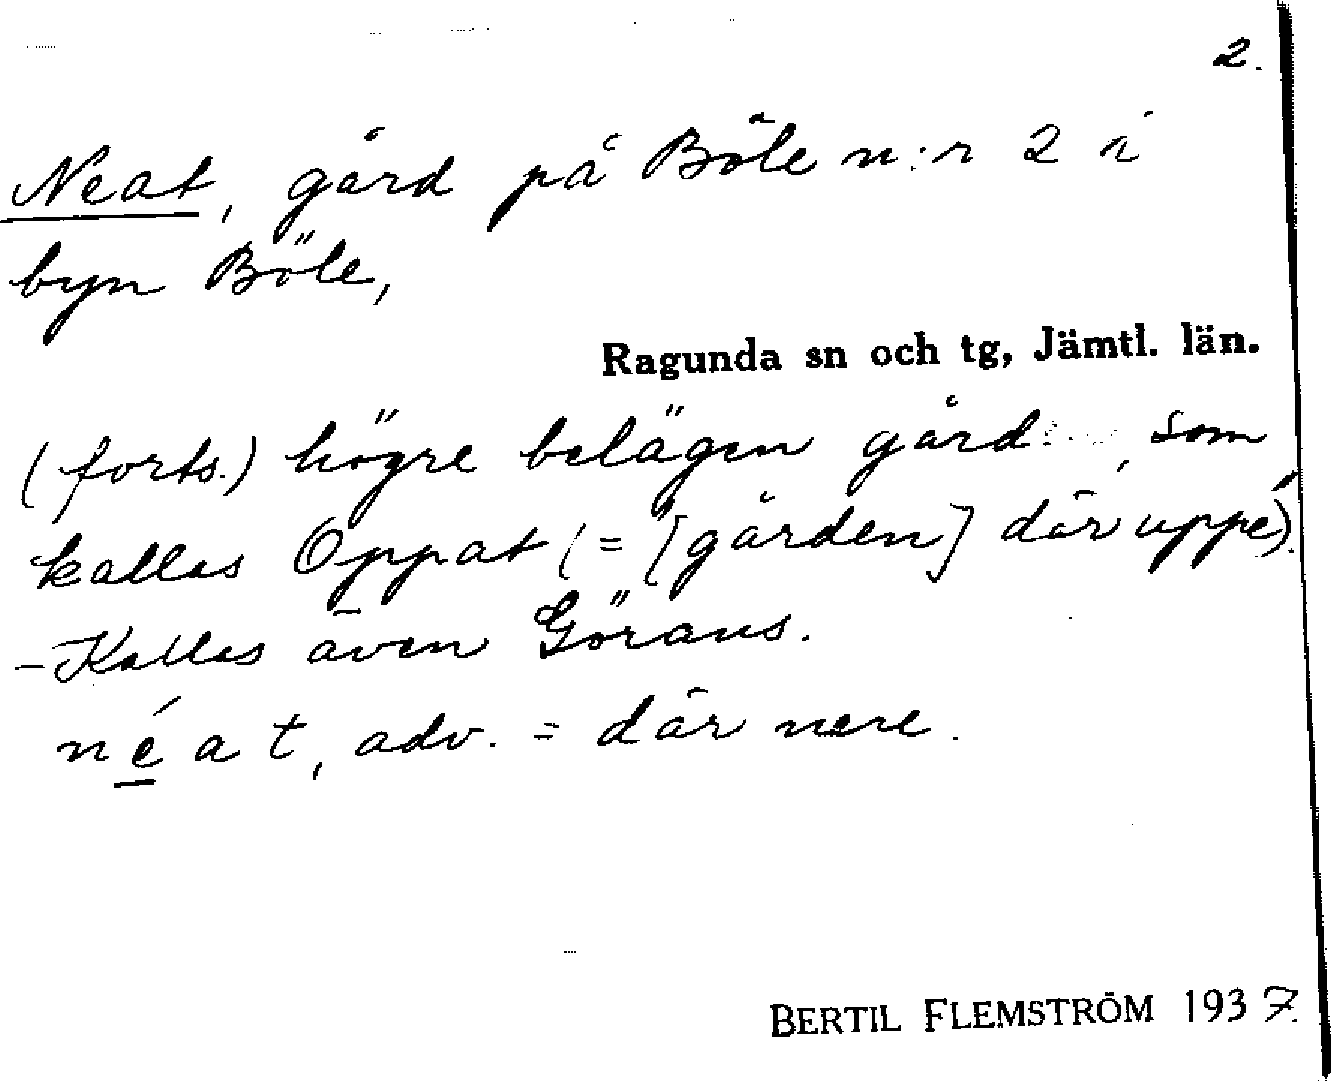 2.
Neat, gård på Böle n:r 2 i
byn Böle,
Ragunda sn och tg, Jämtl. län.
(forts.) högre belägen gård, som
kallas Oppat (= [gården] där uppe).
- Kallas även Görans.
néat, adv. = där nere.
BERTIL FLEMSTRÖM 1937.